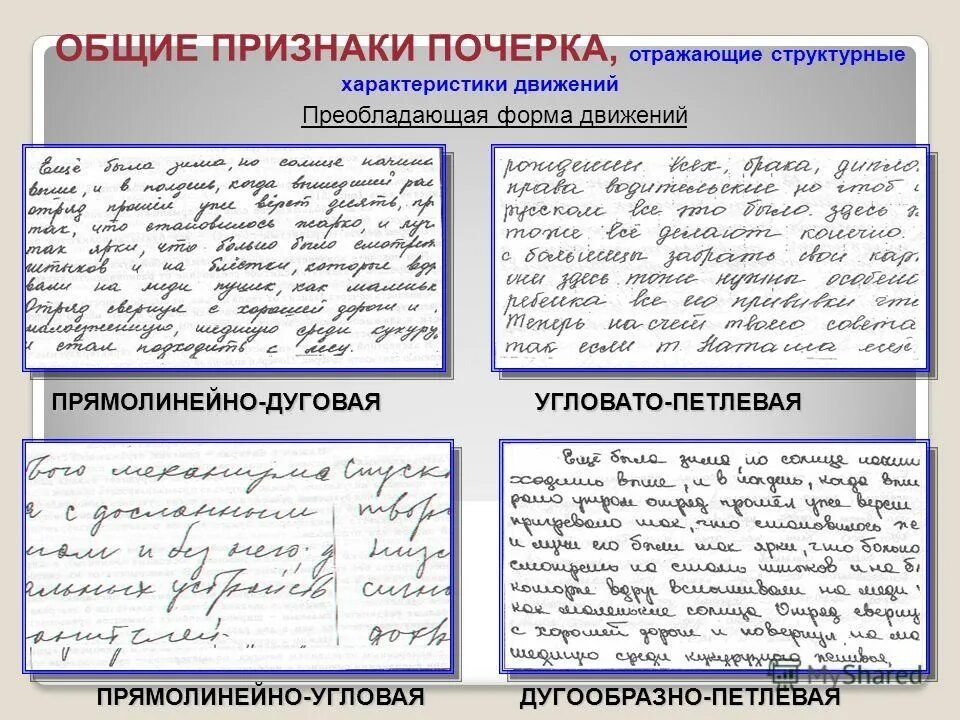 ОБЩИЕ ПРИЗНАКИ ПОЧЕРКА, отражающие структурные
характеристики движений
Преобладающая форма движений
Ещё была зима, но солнце начина
выше, и в полдень, когда вышедший ран
отряд прошёл уже вёрст десять, пр
так, что становилось жарко, и луч
так ярки, что больно было смотреть
штыков и на блёстки, которые вдр
вали на меди пушек, как маленьк
Отряд свернул с хорошей дороги и
малоезженную, шедшую среди кукуру
и стал подходить с лесу.
рождении всех, брака, дипло
права водительские но чтоб и
русском все это было. здесь
тоже всё делают конечно.
с больницы забрать свои кар
они здесь тоже нужны особен
ребенка все его прививки что
Теперь насчет твоего совета
так если т Наташа ещё
ПРЯМОЛИНЕЙНО-ДУГОВАЯ
УГЛОВАТО-ПЕТЛЕВАЯ
вого механизма спуск
я с досланным
и без него.
альных устройств
Ещё была зима, но солнце начин
ходить выше, и в полдень, когда выш
рано утром отряд прошёл уже верст
пригревало так, что становилось же
и лучи его были так ярки, что больно
смотреть на сталь штыков и на б
которые вдруг вспыхивали на меди
как маленькие солнца. Отряд сверну
с хорошей дороги и повернул на ма
шедшую среди кукурузного жнивья,
ПРЯМОЛИНЕЙНО-УГЛОВАЯ
ДУГООБРАЗНО-ПЕТЛЕВАЯ
MyShared